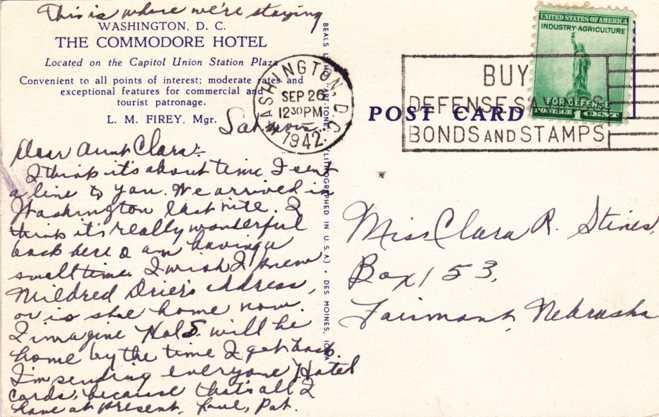 This is where we're staying
WASHINGTON, D. C.
THE COMMODORE HOTEL
Located on the Capitol Union Station Plaza
Convenient to all points of interest; moderate rates and
exceptional features for commercial and
tourist patronage.
L. M. FIREY, Mgr.
Sat. noon
Dear Aunt Clara:-
I think it's about time I sent
a line to you. We arrived in
Washington last nite. I
think it's really wonderful
back here & am having a
swell time. I wish I knew
Mildred Drier's adress,
or is she home now.
I imagine Hal S. will be
home by the time I get back.
I'm sending everyone Hotel
cards, because that's all I
have at present. Love, Pat.
BEALS
LITHOGRAPHED IN U.S.A.) • DES MOINES, IOWA
WASHINGTON, D.C.
SEP 26
12 30 PM
1942
BUY
DEFENSE SAVINGS
BONDS AND STAMPS
UNITED STATES OF AMERICA
INDUSTRY-AGRICULTURE
FOR DEFENSE
CENT
POST CARD
Miss Clara R. Stines,
Box 153,
Fairmont, Nebraska